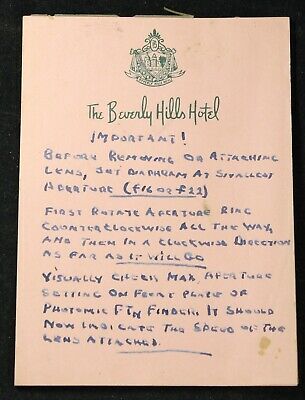 The Beverly Hills Hotel
IMPORTANT!
BEFORE REMOVING OR ATTACHING
LENS, SET DIAPHRAM AT SMALLEST
APERTURE (f16 OR f22)
FIRST ROTATE APERTURE RING
COUNTERCLOCKWISE ALL THE WAY,
AND THEN IN A CLOCKWISE DIRECTION
AS FAR AS IT WILL GO
VISUALLY CHECK MAX. APERTURE
SETTING ON FRONT PLATE OF
PHOTOMIC FTN FINDER. IT SHOULD
NOW INDICATE THE SPEED OF THE
LENS ATTACHED.